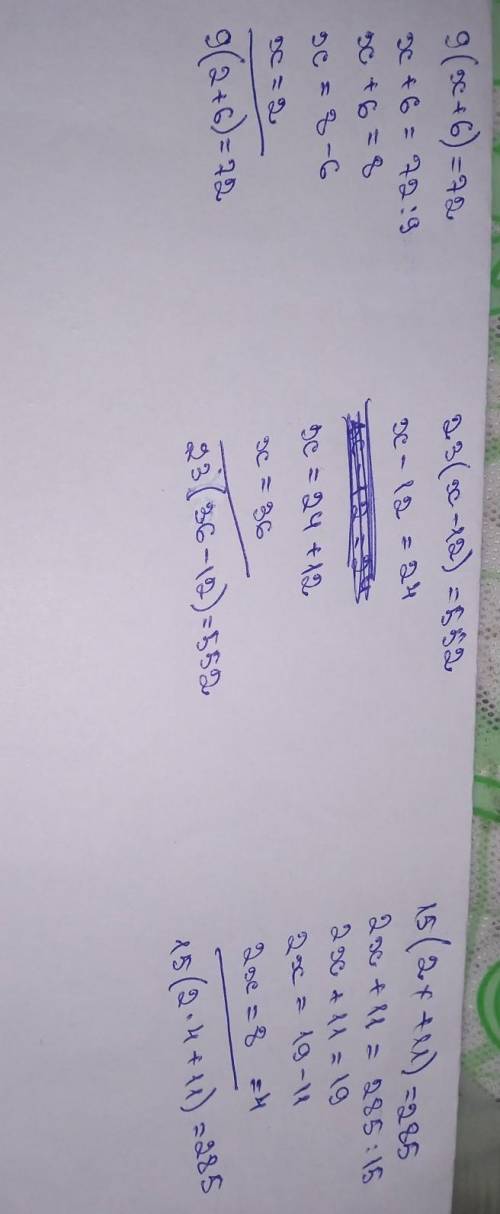 9(x+6)=72
x+6=72:9
x+6=8
x=8-6
x=2
9(2+6)=72
23(x-12)=552
x-12=24
x=24+12
x=36
23(36-12)=552
15(2x+11)=285
2x+11=285:15
2x+11=19
2x=19-11
2x=8 =4
15(2·4+11)=285